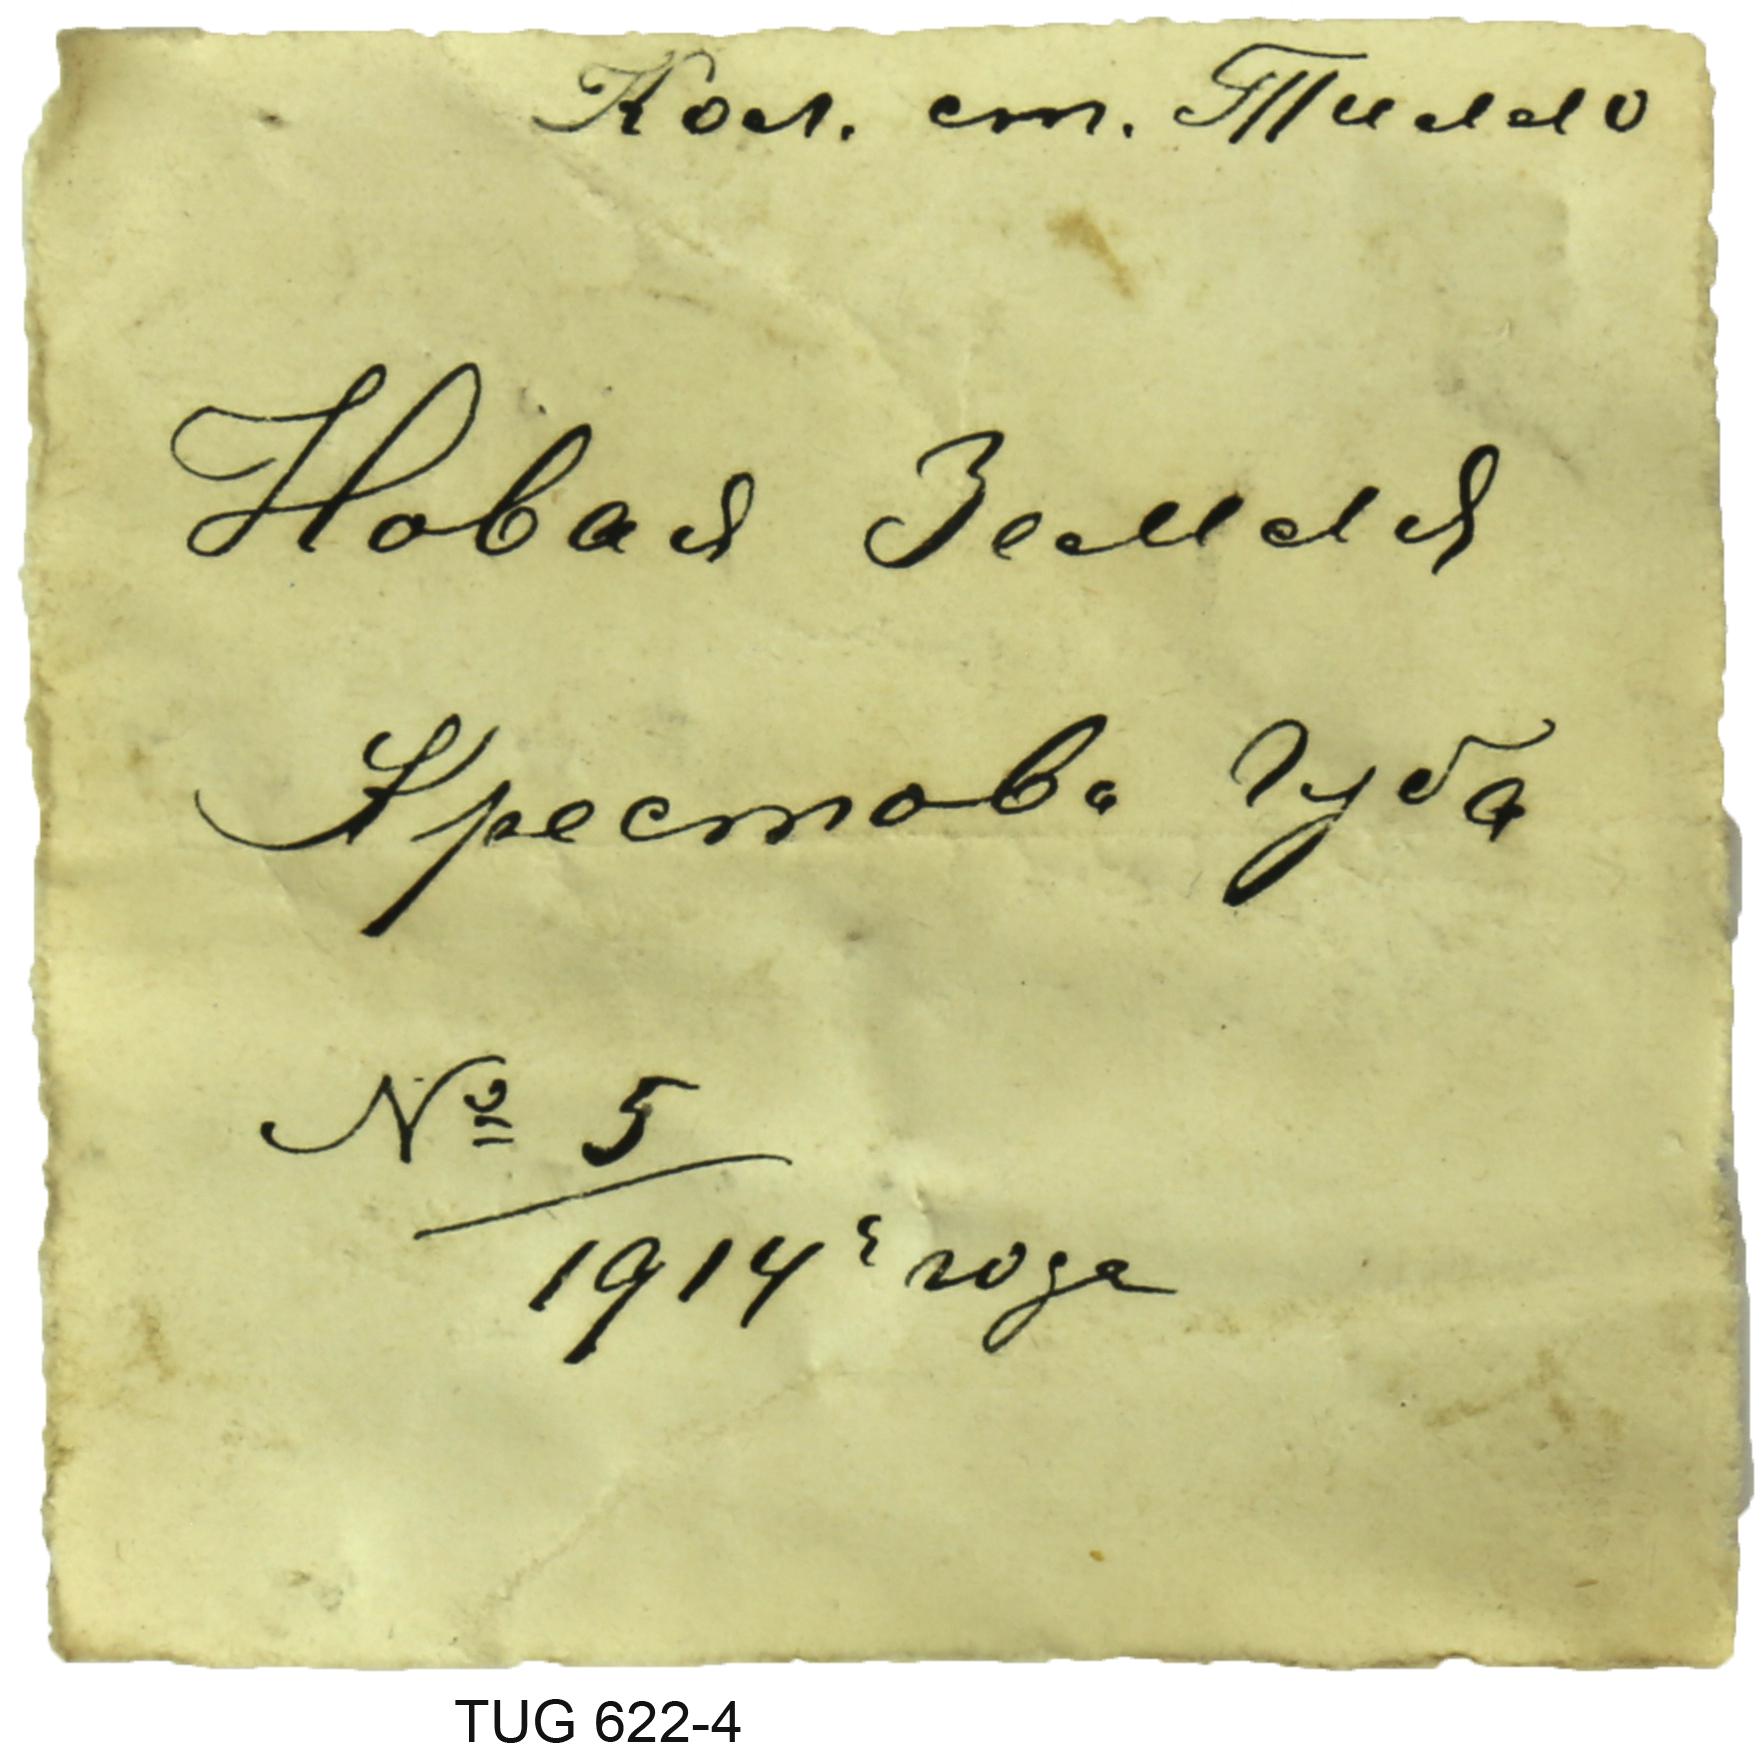 Кол. ст. Тилло
Новая Земля
Крестова Губа
№ 5
1914 г года
TUG 622-4